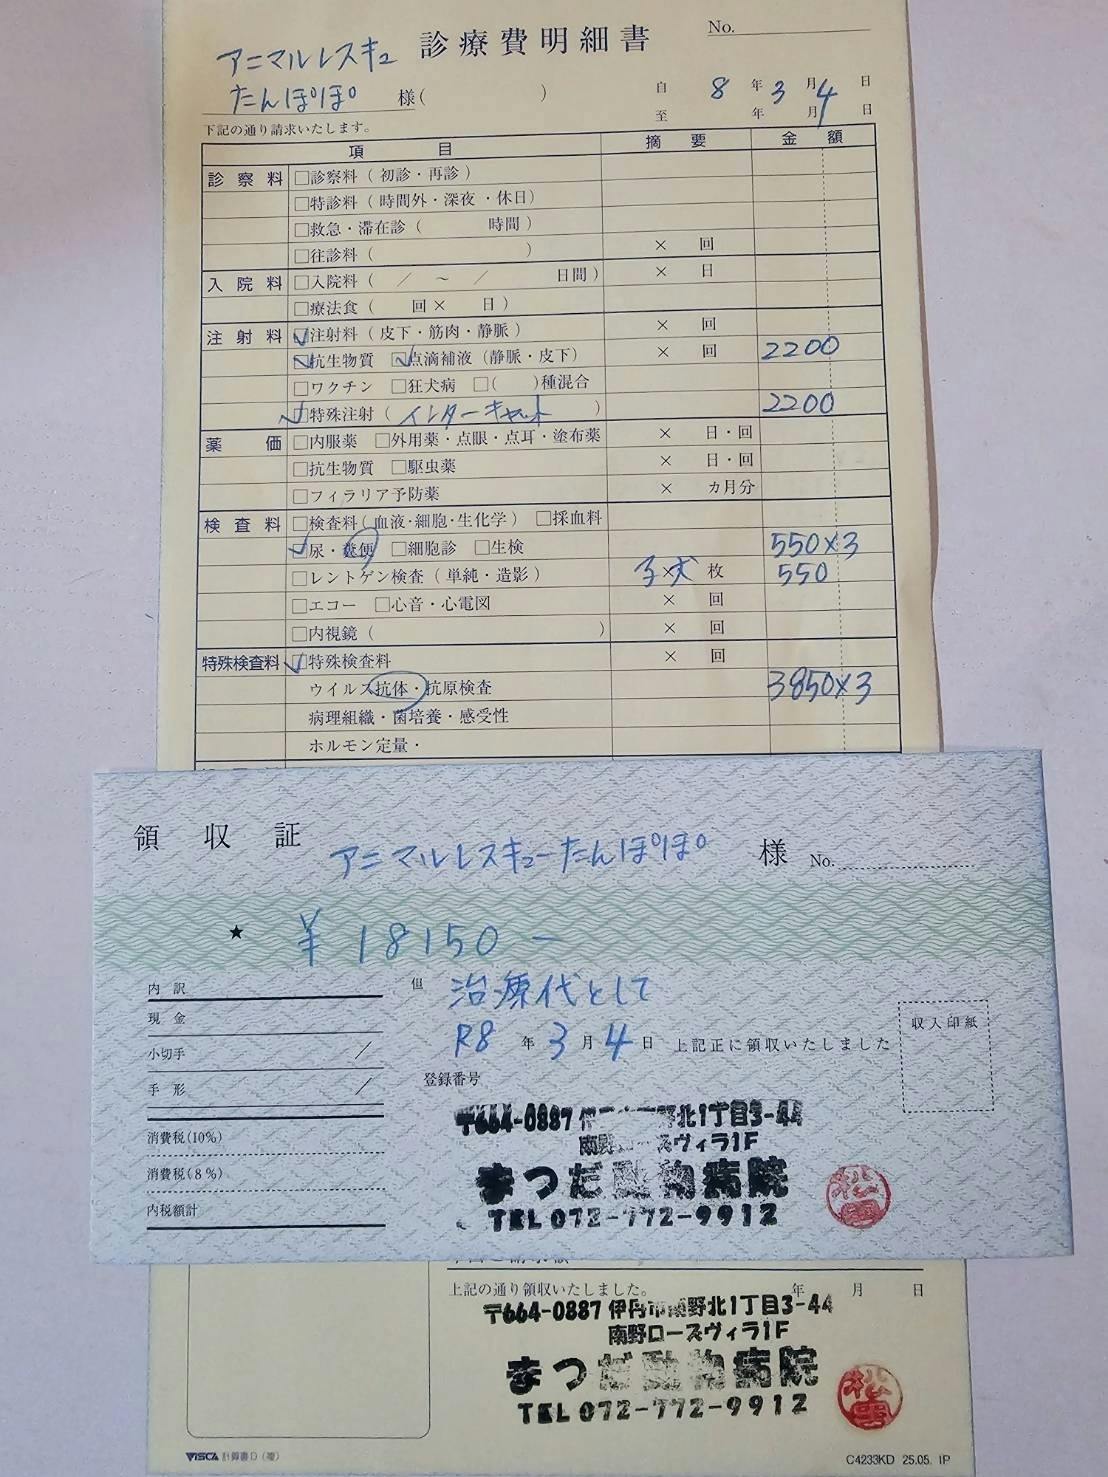 診療費明細書
No.
アニマルレスキュ
たんぽぽ 様( )
自 8 年 3 月 4 日
至 年 月 日
下記の通り請求いたします。
項 目 摘 要 金 額
診察料 □診察料(初診・再診)
□特診料(時間外・深夜・休日)
□救急・滞在診( 時間)
□往診料( ) × 回
入院料 □入院料( / 〜 / 日間) × 日
□療法食( 回× 日)
注射料 ☑注射料(皮下・筋肉・静脈) × 回
☑抗生物質 ☑点滴補液(静脈・皮下) × 回 2200
□ワクチン □狂犬病 □( )種混合
☑特殊注射(インターキャット) 2200
薬価 □内服薬 □外用薬・点眼・点耳・塗布薬 × 日・回
□抗生物質 □駆虫薬 × 日・回
□フィラリア予防薬 × カ月分
検査料 □検査料(血液・細胞・生化学) □採血料
☑尿・糞便 □細胞診 □生検 550×3
□レントゲン検査(単純・造影) × 枚 550
□エコー □心音・心電図 × 回
□内視鏡( ) × 回
特殊検査料 ☑特殊検査料 × 回
ウイルス抗体・抗原検査 3850×3
病理組織・菌培養・感受性
ホルモン定量・
領収証
アニマルレスキューたんぽぽ 様 No.
★ ¥18150−
内訳
現金
小切手 /
手形 /
消費税(10%)
消費税(8%)
内税額計
但 治療代として
R8 年 3 月 4 日 上記正に領収いたしました
収入印紙
登録番号
〒664-0887 伊丹市南野北1丁目3-44
南野ローズヴィラ1F
まつだ動物病院
TEL 072-772-9912
上記の通り領収いたしました。 年 月 日
〒664-0887 伊丹市南野北1丁目3-44
南野ローズヴィラ1F
まつだ動物病院
TEL 072-772-9912
VISCA 計算書D(複)
C4233KD 25.05. IP